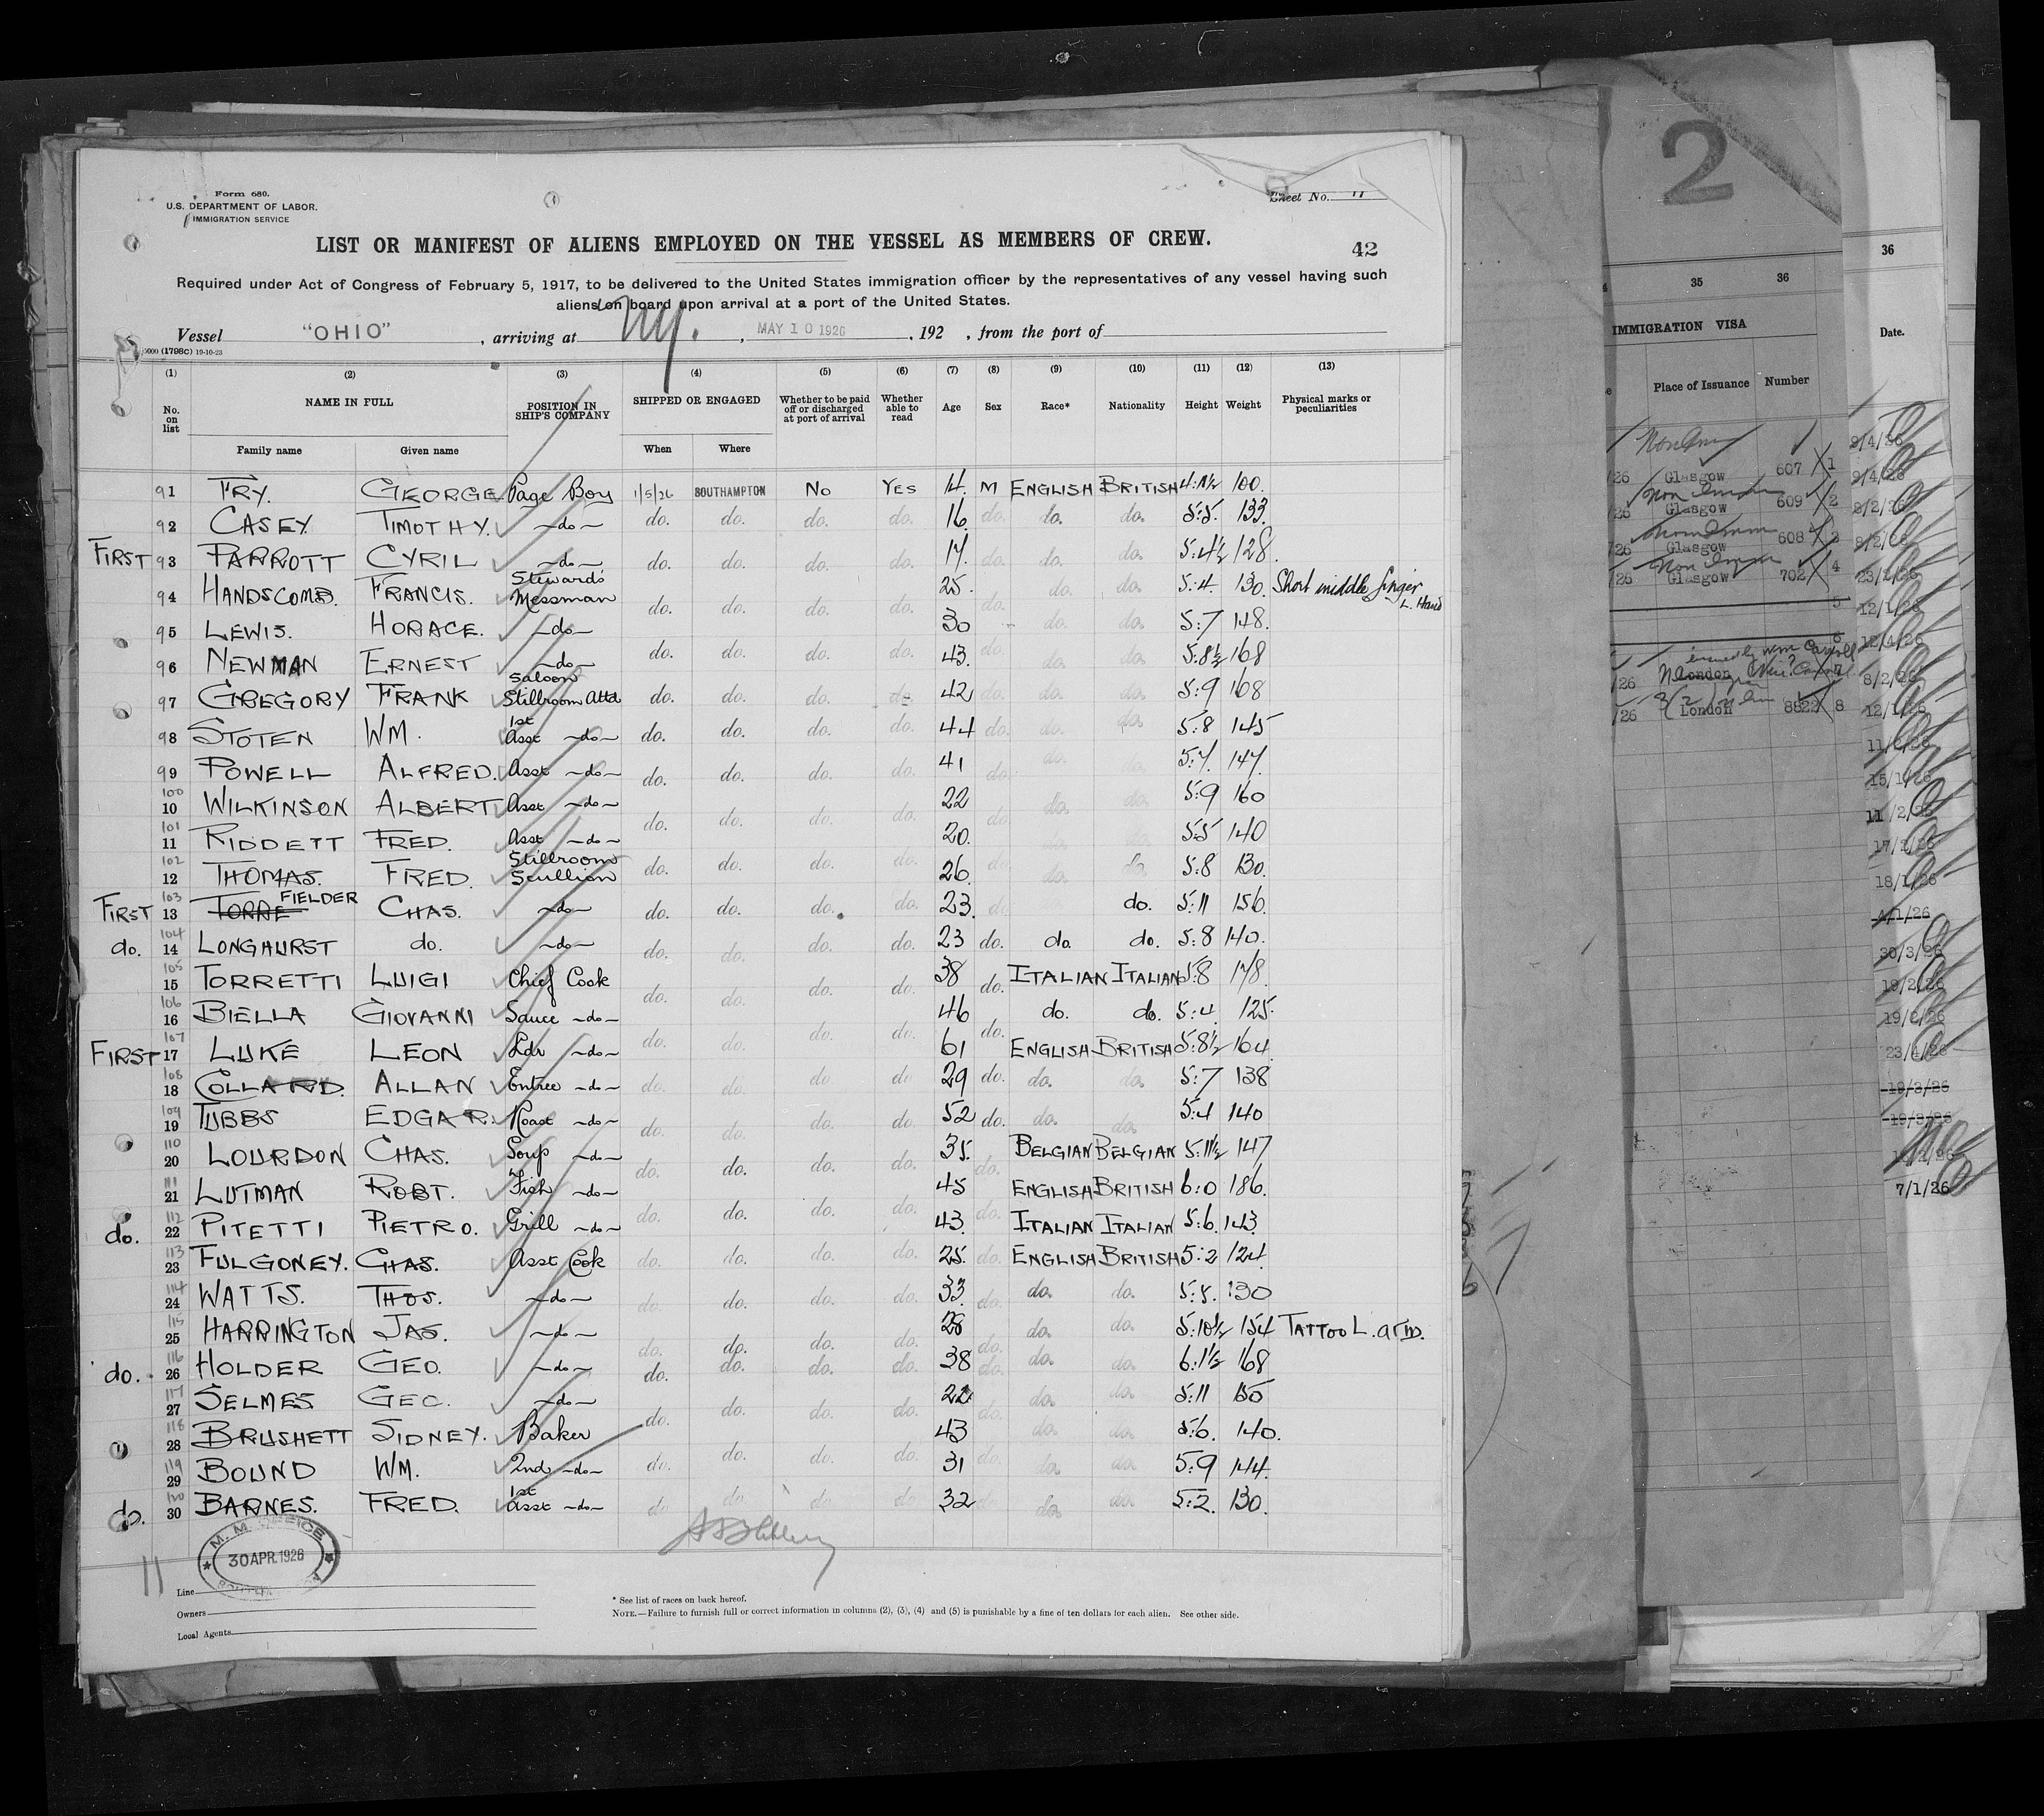 Form 680.
U.S. DEPARTMENT OF LABOR.
IMMIGRATION SERVICE
Sheet No. 11
LIST OR MANIFEST OF ALIENS EMPLOYED ON THE VESSEL AS MEMBERS OF CREW.
42
Required under Act of Congress of February 5, 1917, to be delivered to the United States immigration officer by the representatives of any vessel having such
aliens on board upon arrival at a port of the United States.
Vessel "OHIO", arriving at NY., MAY 10 1926, 192 , from the port of
5000 (1798C) 19-10-23
(1) (2) (3) (4) (5) (6) (7) (8) (9) (10) (11) (12) (13)
No. on list NAME IN FULL POSITION IN SHIP'S COMPANY SHIPPED OR ENGAGED Whether to be paid off or discharged at port of arrival Whether able to read Age Sex Race* Nationality Height Weight Physical marks or peculiarities
Family name Given name When Where
91 FRY. GEORGE Page Boy 1/5/26 SOUTHAMPTON No YES 14. M ENGLISH BRITISH 4:11½ 100.
92 CASEY. TIMOTHY. -do- do. do. do. do. 16 do. do. do. 5:5. 133.
FIRST 93 PARROTT CYRIL -do- do. do. do. do. 17. do. do. do. 5:4½ 128.
94 HANDSCOMB. FRANCIS. Stewards Messman do. do. do. do. 25. do. do. do. 5:4. 130. Short middle finger L. Hand
95 LEWIS. HORACE. -do- do. do. do. do. 30 do. do. 5:7 148.
96 NEWMAN ERNEST -do- do. do. do. do. 43. do. do. do. 5:8½ 168
97 GREGORY FRANK Saloon Stillroom Attd do. do. do. do. 42 do. do. do. 5:9 168
98 STOTEN WM. 1st Asst -do- do. do. do. do. 44 do. do. do. 5:8 145
99 POWELL ALFRED. Asst -do- do. do. do. do. 41 do. do. do. 5:7. 147.
100 10 WILKINSON ALBERT Asst -do- do. do. do. do. 22 do. do. do. 5:9 160
101 11 RIDDETT FRED. Asst -do- do. do. do. do. 20. do. do. do. 5:5 140
102 12 THOMAS. FRED. Stillroom Scullion do. do. do. do. 26. do. do. do. 5:8 130.
FIRST 103 13 FIELDER CHAS. -do- do. do. do. do. 23. do. do. 5:11 156.
do. 104 14 LONGHURST do. -do- do. do. do. do. 23 do. do. do. 5:8 140.
105 15 TORRETTI LUIGI Chief Cook do. do. do. do. 38 do. ITALIAN ITALIAN 5:8 178.
106 16 BIELLA GIOVANNI Sauce -do- do. do. do. do. 46 do. do. do. 5:4. 125.
FIRST 107 17 LUKE LEON Ldr -do- do. do. do. do. 61 ENGLISH BRITISH 5:8½ 164.
108 18 COLLARD. ALLAN Entree -do- do. do. do. do. 29 do. do. do. 5:7 138
109 19 TUBBS EDGAR. Roast -do- do. do. do. do. 52 do. do. do. 5:4 140
110 20 LOURDON CHAS. Soup -do- do. do. do. do. 35. do. BELGIAN BELGIAN 5:11½ 147
111 21 LUTMAN ROBT. Fish -do- do. do. do. do. 45 ENGLISH BRITISH 6:0 186.
do. 112 22 PITETTI PIETRO. Grill -do- do. do. do. do. 43. do. ITALIAN ITALIAN 5:6. 143.
113 23 FULGONEY. CHAS. Asst Cook do. do. do. do. 25. do. ENGLISH BRITISH 5:2 124.
114 24 WATTS. THOS. -do- do. do. do. do. 33. do. do. do. 5:5. 130
115 25 HARRINGTON JAS. -do- do. do. do. do. 28 do. do. do. 5:10½ 154 TATTOO L. arm.
do. 116 26 HOLDER GEO. -do- do. do. do. do. 38 do. do. do. 6:1½ 168
117 27 SELMES GEO. -do- do. do. do. do. 22 do. do. do. 5:11 150
118 28 BRUSHETT SIDNEY. Baker do. do. do. do. 43 do. do. do. 5:6. 140.
119 29 BOUND WM. 2nd -do- do. do. do. do. 31 do. do. do. 5:9 144.
do. 120 30 BARNES. FRED. 1st Asst -do- do. do. do. do. 32 do. do. do. 5:2. 130.
M. M. OFFICE
30 APR. 1926
11
Line
Owners
Local Agents
* See list of races on back hereof.
NOTE.—Failure to furnish full or correct information in columns (2), (3), (4) and (5) is punishable by a fine of ten dollars for each alien. See other side.
2
35 36
IMMIGRATION VISA
Place of Issuance Number
/26 Glasgow 607 1
/26 Glasgow 609 2
/26 Glasgow 608 3
/26 Glasgow 702 4
5
6
/26 London 7
/26 London 8822 8
36
Date.
9/4/26
9/4/26
8/2/26
8/2/26
23/2/26
12/1/26
12/4/26
8/2/26
12/1/26
15/1/26
11/2/26
17/2/26
18/1/26
4/1/26
30/3/26
19/2/26
19/2/26
23/4/26
19/3/26
19/3/26
7/1/26